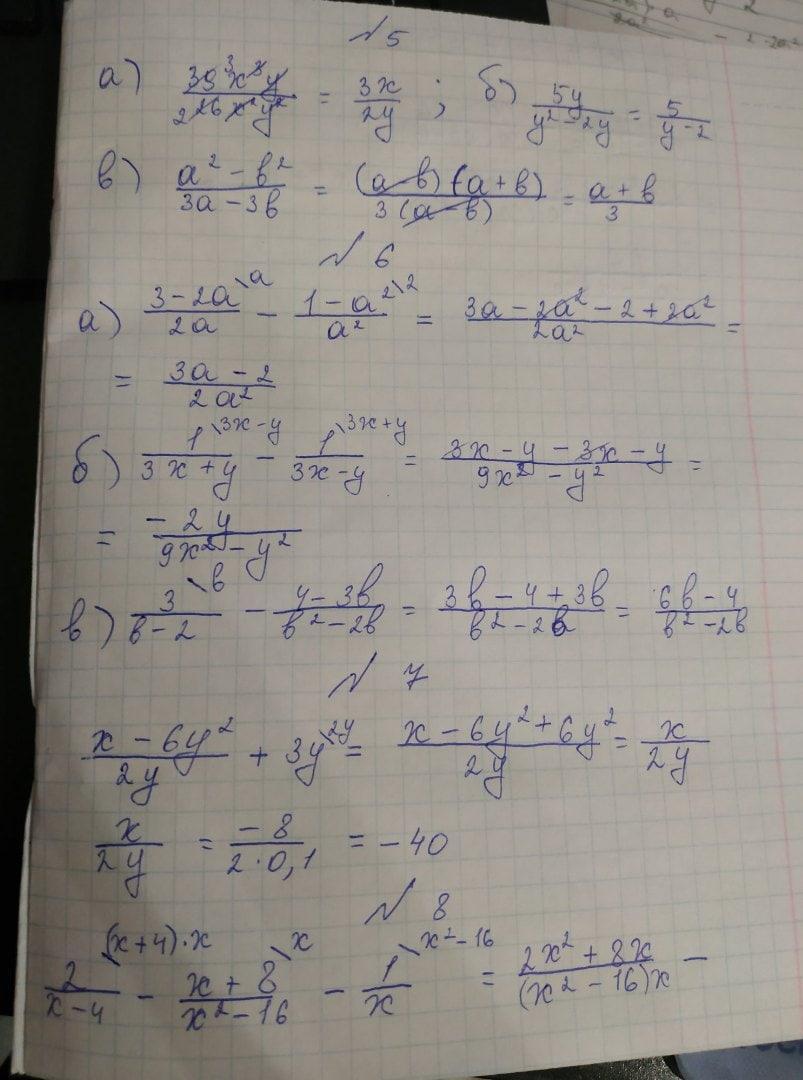 №5
а) 39³x³y / 2 26 x²y² = 3x / 2y ; б) 5y / y² - 2y = 5 / y - 2
в) a² - b² / 3a - 3b = (a - b)(a + b) / 3(a - b) = a + b / 3
№6
а) 3 - 2a \a / 2a - 1 - a² \2 / a² = 3a - 2a² - 2 + 2a² / 2a² =
= 3a - 2 / 2a²
б) 1 \3x - y / 3x + y - 1 \3x + y / 3x - y = 3x - y - 3x - y / 9x² - y² =
= - 2y / 9x² - y²
в) 3 \b / b - 2 - 4 - 3b / b² - 2b = 3b - 4 + 3b / b² - 2b = 6b - 4 / b² - 2b
№7
x - 6y² / 2y + 3y \2y = x - 6y² + 6y² / 2y = x / 2y
x / 2y = - 8 / 2 · 0,1 = - 40
№8
2 \(x + 4) · x / x - 4 - x + 8 \x / x² - 16 - 1 \x² - 16 / x = 2x² + 8x / (x² - 16)x -